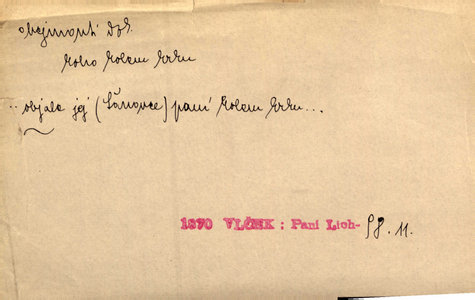 obejmouti dok.
koho kolem krku
.. objala jej (Šanovce) paní kolem krku...
1870 VLČEK : Paní Lich- 98. 11.